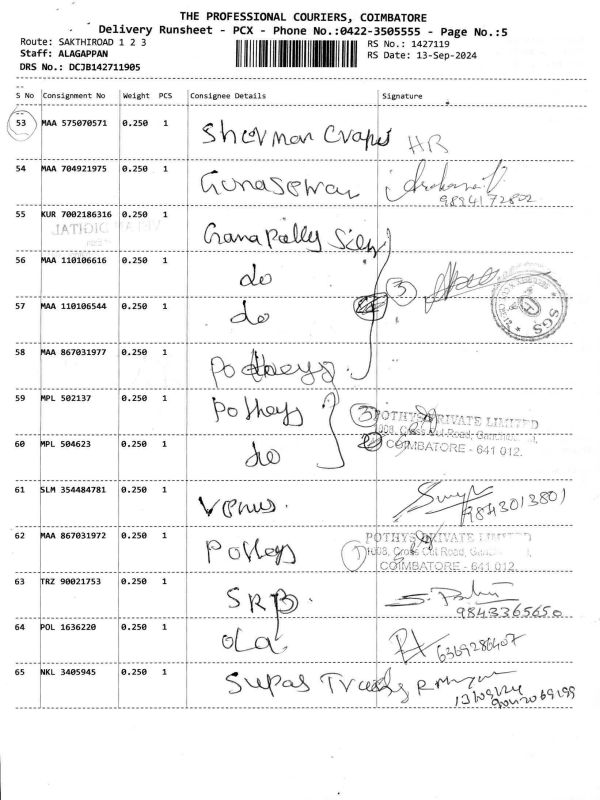 THE PROFESSIONAL COURIERS, COIMBATORE
Delivery Runsheet - PCX - Phone No.:0422-3505555 - Page No.:5
Route: SAKTHIROAD 1 2 3
RS No.: 1427119
Staff: ALAGAPPAN
RS Date: 13-Sep-2024
DRS No.: DCJB142711905
S No Consignment No Weight PCS Consignee Details Signature
53 MAA 575070571 0.250 1 HR
54 MAA 704921975 0.250 1
9894172802
55 KUR 7002186316 0.250 1
56 MAA 110106616 0.250 1 do
3
57 MAA 110106544 0.250 1 do
58 MAA 867031977 0.250 1 Potheys
59 MPL 502137 0.250 1 Potheys
3 POTHYS PRIVATE LIMITED
1008, Cross Cut Road,
COIMBATORE - 641 012.
60 MPL 504623 0.250 1 do
61 SLM 354484781 0.250 1 Venus.
9843013801
62 MAA 867031972 0.250 1 Potheys
1 POTHYS PRIVATE LIMITED
1008, Cross Cut Road,
COIMBATORE - 641 012.
63 TRZ 90021753 0.250 1 SRB.
9843365650
64 POL 1636220 0.250 1 OLA
6369286407
65 NKL 3405945 0.250 1
13/09/24
SGS